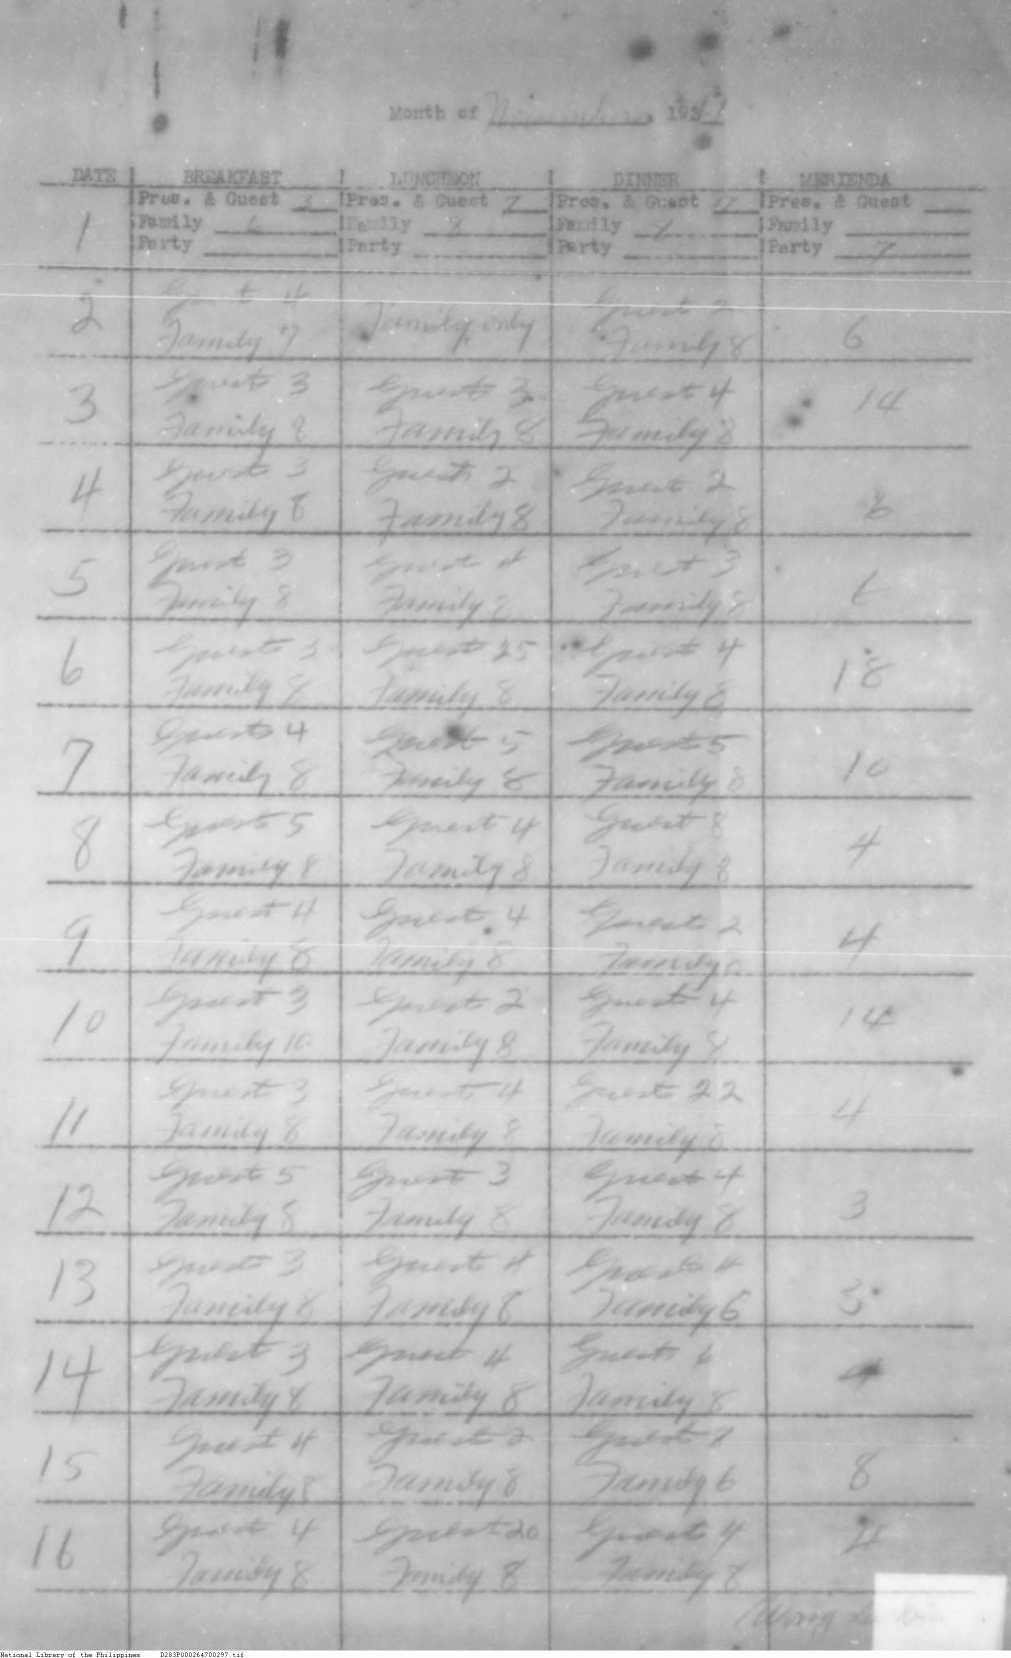 Month of November, 19
DATE ! BREAKFAST ! LUNCHEON ! DINNER ! MERIENDA
1 Pres. & Guest 3 Pres. & Guest 7 Pres. & Guest Pres. & Guest
Family 6 Family 8 Family 8 Family
Party Party Party Party 7
2 Guest 4 Family only Guest 2 6
Family 7 Family 8
3 Guest 3 Guest 3 Guest 4 14
Family 8 Family 8 Family 8
4 Guest 3 Guest 2 Guest 2
Family 8 Family 8 Family 8
5 Guest 3 Guest 4 Guest 3 6
Family 8 Family 8 Family 8
6 Guest 3 Guest 25 Guest 4 18
Family 8 Family 8 Family 8
7 Guest 4 Guest 5 Guest 5 10
Family 8 Family 8 Family 8
8 Guest 5 Guest 4 Guest 8 4
Family 8 Family 8 Family 8
9 Guest 4 Guest 4 Guest 2 4
Family 8 Family 8 Family 8
10 Guest 3 Guest 2 Guest 4 14
Family 10 Family 8 Family 8
11 Guest 3 Guest 4 Guest 22 4
Family 8 Family 8 Family 8
12 Guest 5 Guest 3 Guest 4 3
Family 8 Family 8 Family 8
13 Guest 3 Guest 4 Guest 4 3
Family 8 Family 8 Family 6
14 Guest 3 Guest 4 Guest 6 4
Family 8 Family 8 Family 8
15 Guest 4 Guest 2 Guest 8 8
Family 8 Family 8 Family 6
16 Guest 4 Guest 20 Guest 4 4
Family 8 Family 8 Family 8
National Library of the Philippines D283P000264700297.tif